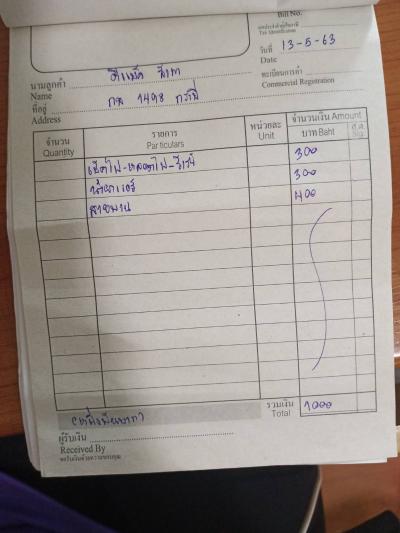 Bill No.
เลขประจำตัวผู้เสียภาษี
Tax Identification
วันที่ 13-5-63
Date
นามลูกค้า ดีแม็ค
Name
ทะเบียนการค้า
Commercial Registration
ที่อยู่ กล 1498 กระบี่
Address
จำนวน
Quantity
รายการ
Particulars
หน่วยละ
Unit
จำนวนเงิน Amount
บาท Baht
ส.ต.
Stg.
300
น้ำยาแอร์ 300
สายพาน 400
รวมเงิน
Total
1000
ผู้รับเงิน
Received By
ขอรับเงินด้วยความขอบคุณ